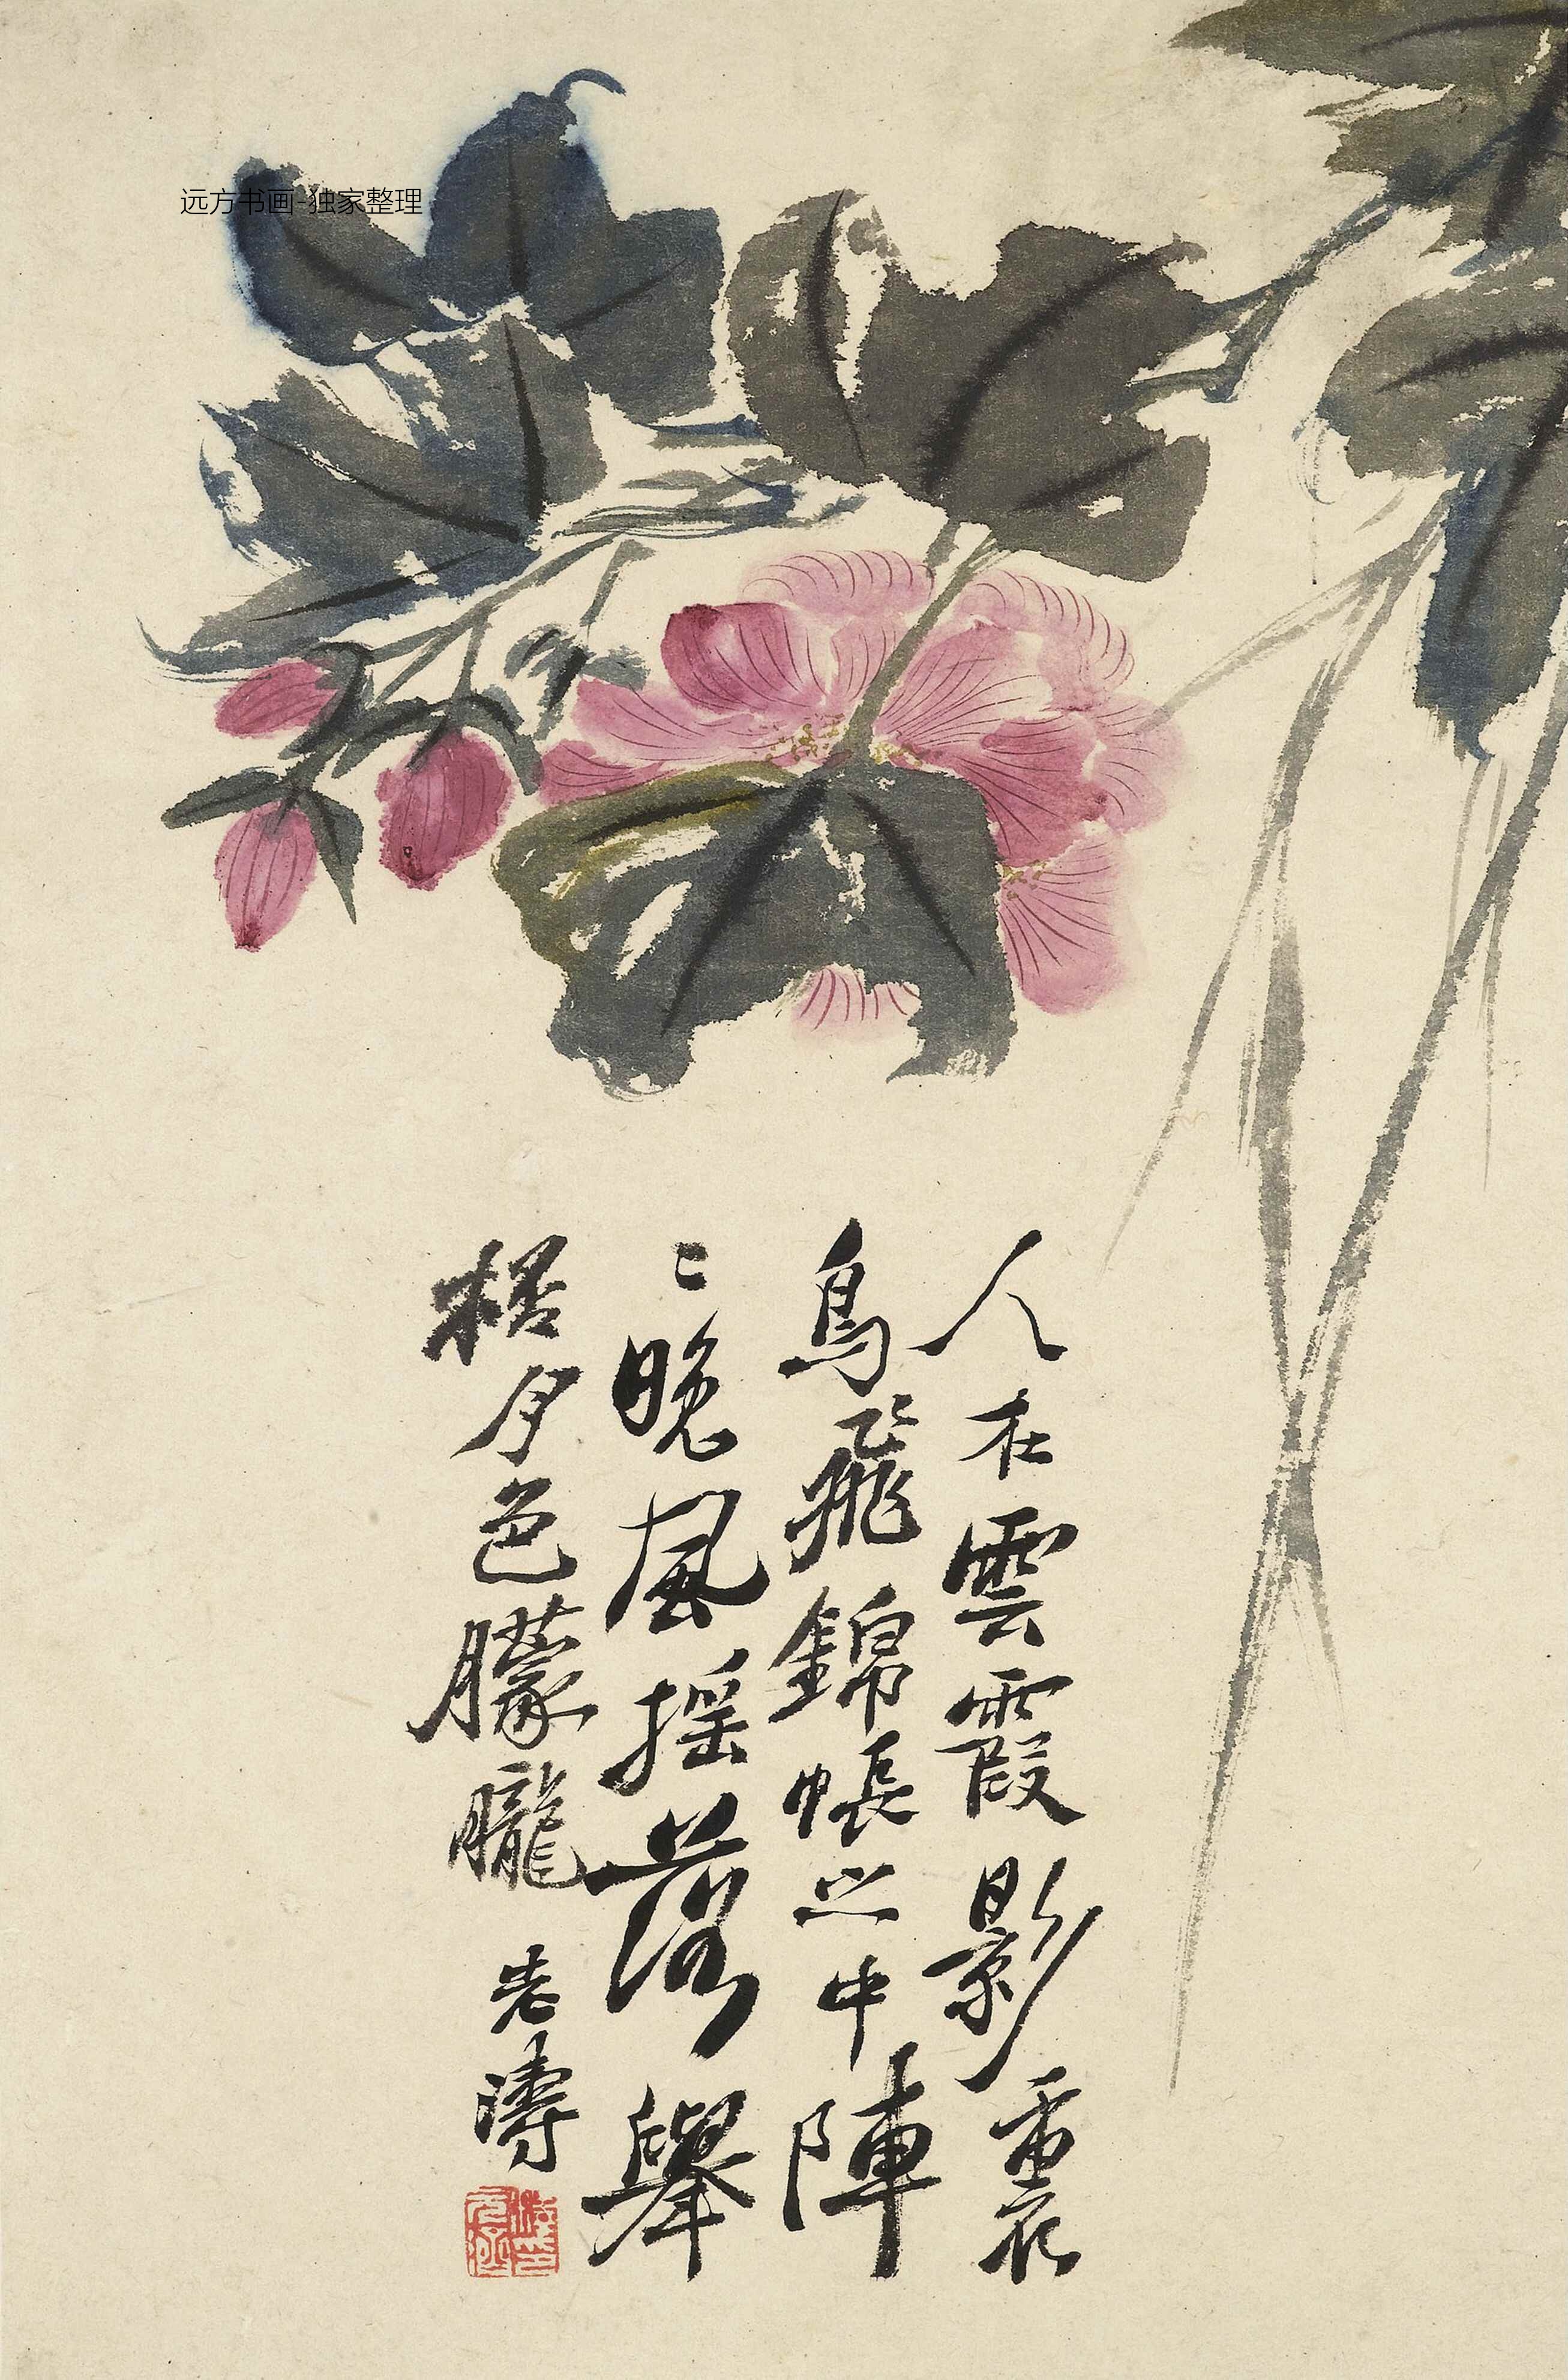 远方书画-独家整理
人在雲霞影裏
鳥飛錦帳之中陣
〻晚風摇落舉
桮月色朦朧 老濤